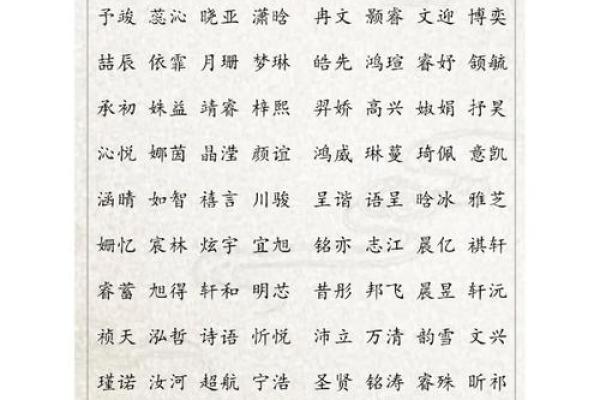 予竣 蕊沁 晓亚 潇晗 冉文 颢睿 文迎 博奕
喆辰 依霏 月珊 梦琳 皓先 鸿瑄 睿妤 颔毓
承初 姝益 靖睿 梓熙 羿娇 高兴 娰娟 抒昊
沁悦 娜茵 晶滢 颜谊 鸿威 琳蔓 琦佩 意凯
涵晴 如智 禧言 川骏 呈谐 语呈 晗冰 雅芝
姗忆 宸林 炫宇 宜旭 铭亦 志江 晨亿 祺轩
睿蓄 旭得 轩和 明芯 昔彤 邦飞 晨昱 轩沅
祯天 泓哲 诗语 忻悦 沛立 万清 韵雪 文兴
瑾诺 汝河 超航 宁浩 圣贤 铭涛 睿殊 昕祁